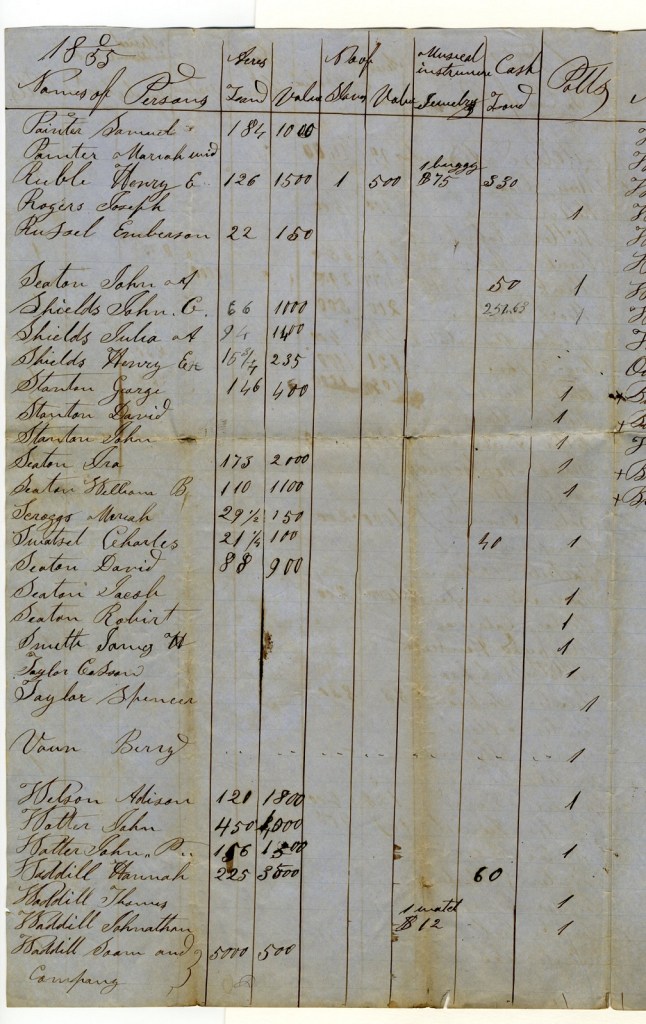 1855
Acres No of Musical
instrume Cash Polls
Names of Persons Land Value Slaves Value Jewelry Land
Painter Samuel 184 1000
Painter Mariah wid
1 buggy
Ruble Henry E 126 1500 1 500 $75 330
Rogers Joseph 1
Russel Emberson 22 150
Seaton John A 50 1
Shields John. C. 66 1000 251.63 1
Shields Julia A 94 1400
Shields Henry 235
Stanton Gorge 146 400 1
Stanton David 1
Stanton John 1
Seaton Ira 175 2000 1
Seaton William B 110 1100 1
Scroggs Meriah 29 1/2 150
Charles 21 1/4 100 40 1
Seaton David 88 900
Seaton Jacob 1
Seaton Robirt 1
Smith James H 1
Taylor 1
Taylor Spencer 1
Vaun Berry 1
Welson Adison 120 1800 1
Watter John 450
Watter John. P.. 156 1
Waddill Hannah 225 3500 60
Waddill Thomas 1
1 watch
Waddill Johnathan $12 1
Waddill Soam and 5000 500
Company